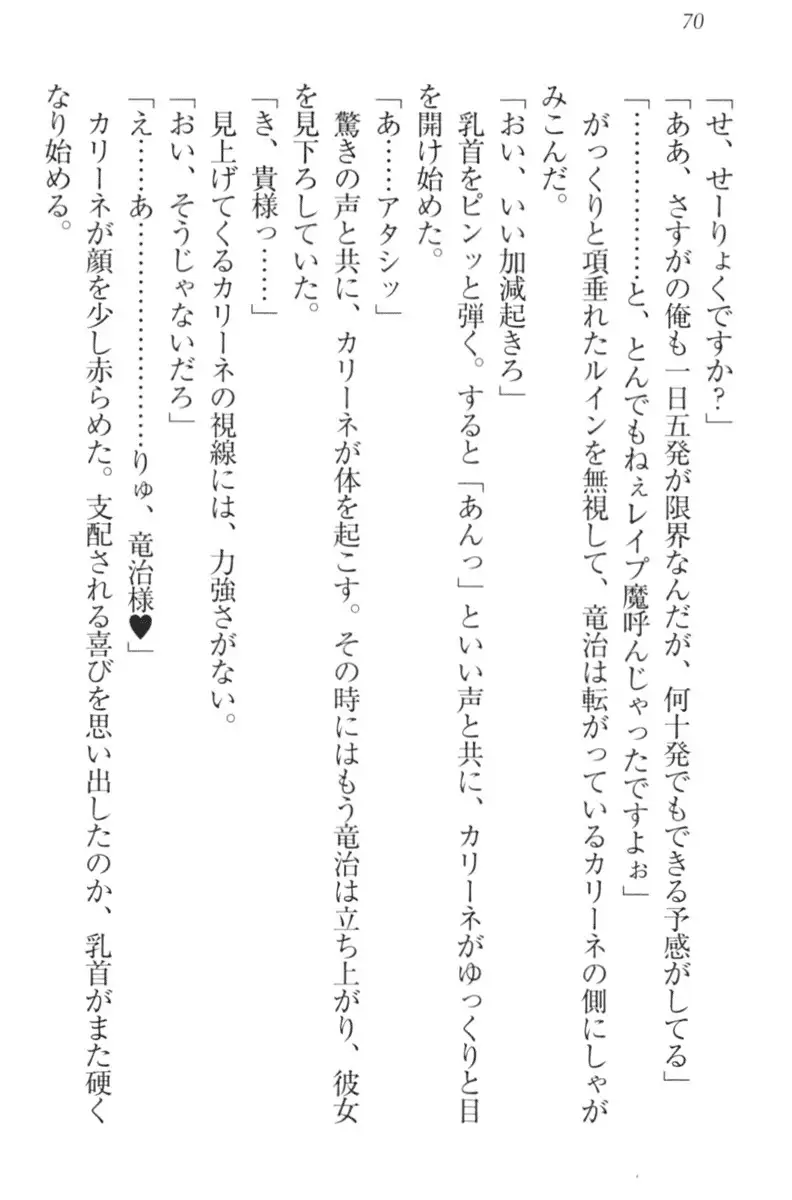 70
「せ、せーりょくですか？」
「ああ、さすがの俺も一日五発が限界なんだが、何十発でもできる予感がしてる」
「………………と、とんでもねぇレイプ魔呼んじゃったですよぉ」
がっくりと項垂れたルインを無視して、竜治は転がっているカリーネの側にしゃが
みこんだ。
「おい、いい加減起きろ」
乳首をピンッと弾く。すると「あんっ」といい声と共に、カリーネがゆっくりと目
を開け始めた。
「あ……アタシッ」
驚きの声と共に、カリーネが体を起こす。その時にはもう竜治は立ち上がり、彼女
を見下ろしていた。
「き、貴様っ……」
見上げてくるカリーネの視線には、力強さがない。
「おい、そうじゃないだろ」
「え……あ…………………りゅ、竜治様♥」
カリーネが顔を少し赤らめた。支配される喜びを思い出したのか、乳首がまた硬く
なり始める。